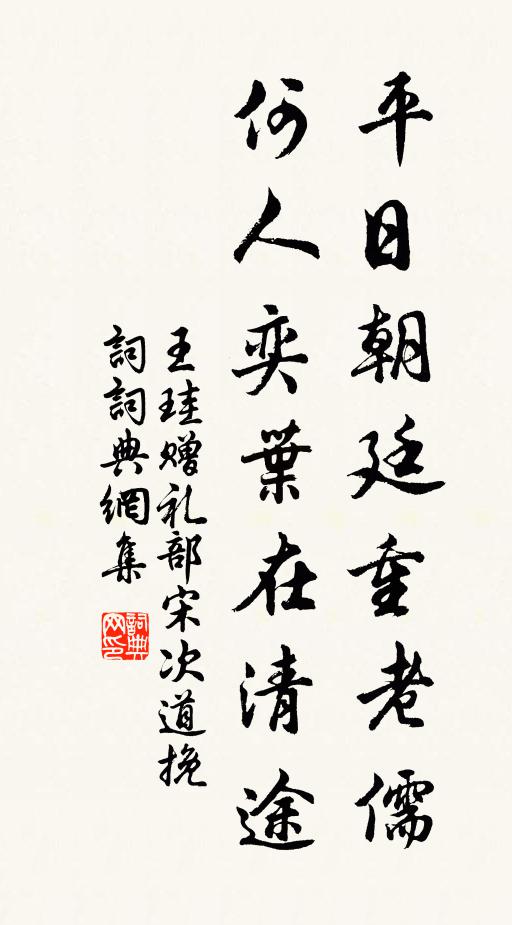 平日朝廷重老儒
何人奕葉在清途
王珪赠礼部宋次道挽
詞詞典網集
詞典网印